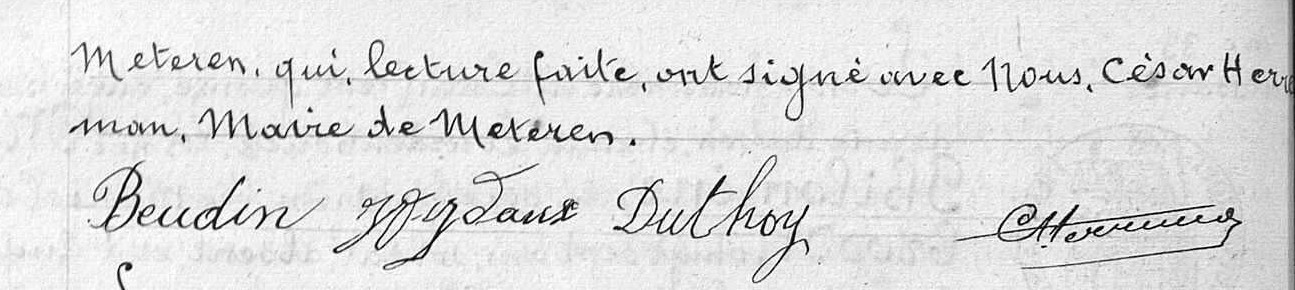 Meteren, qui, lecture faite, ont signé avec Nous, César Her
man, Maire de Meteren.
Beudin Duthoy CHerman